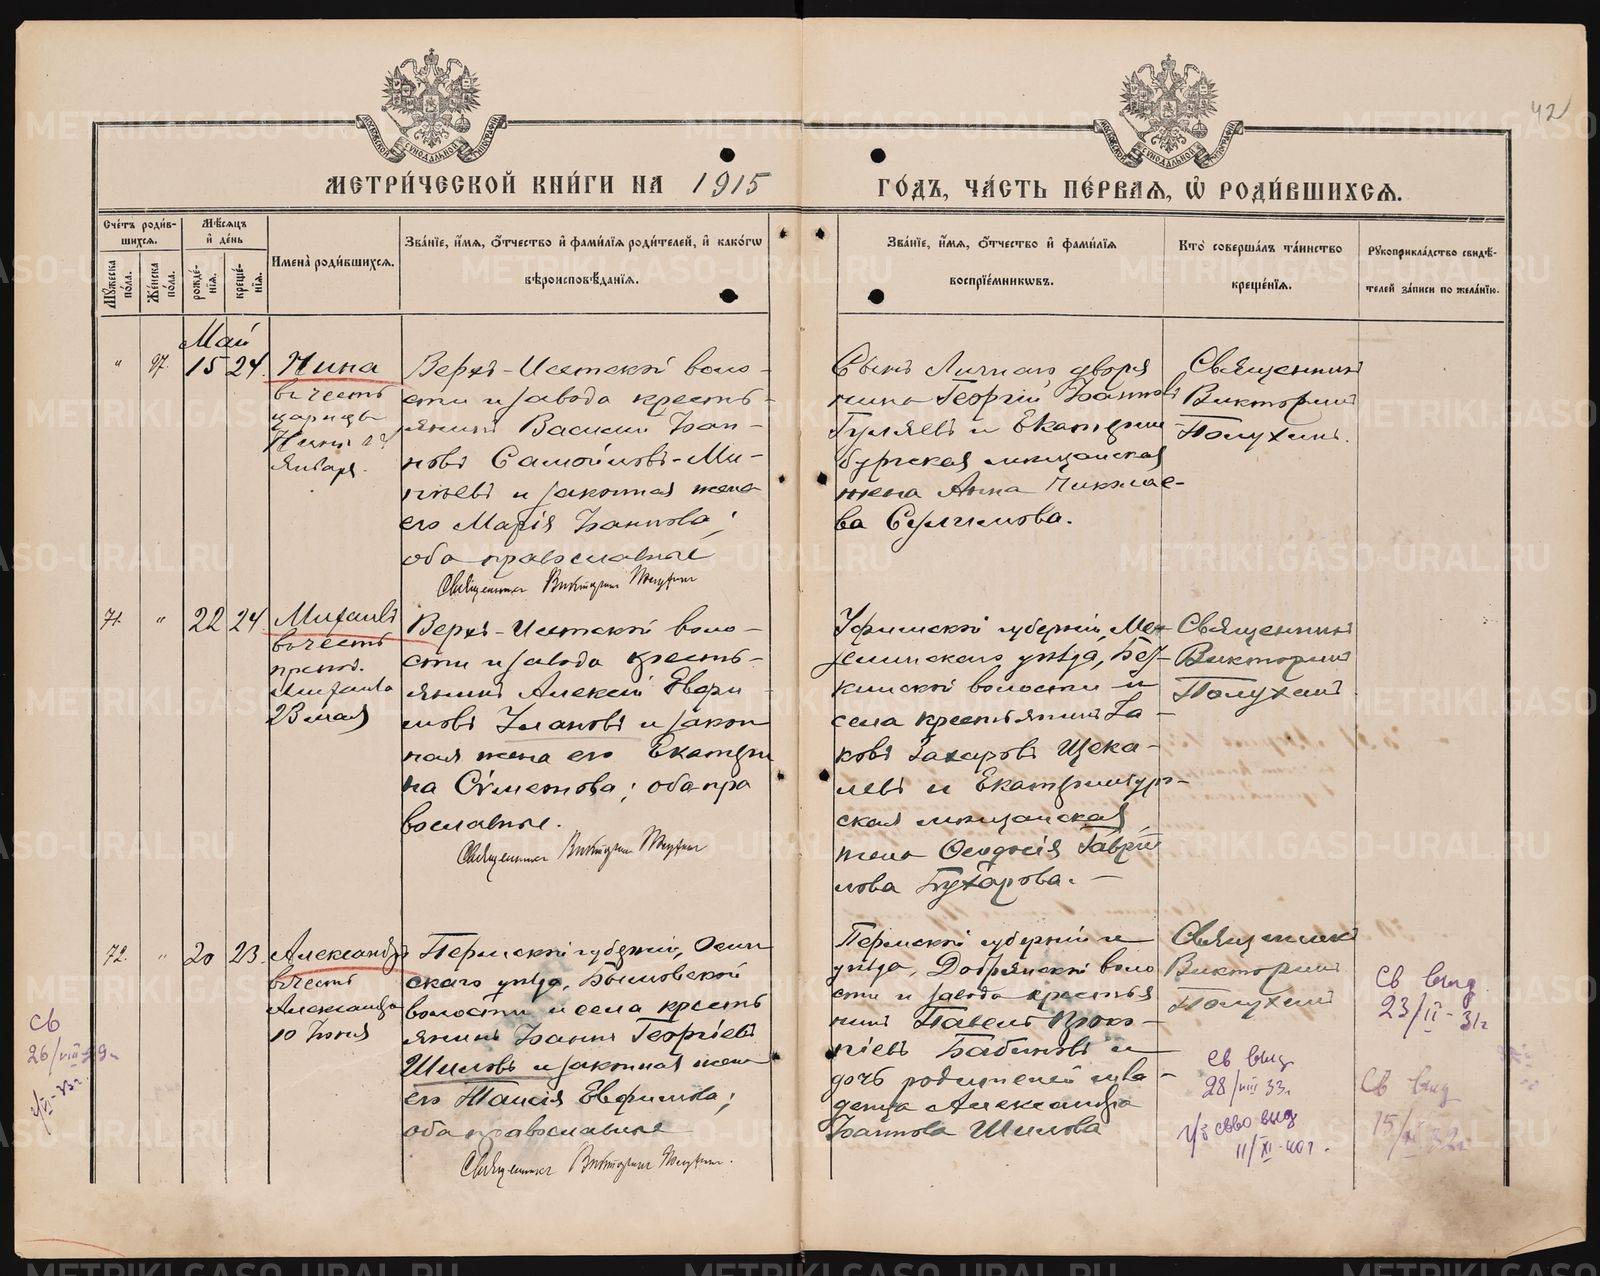 42
МЕТРИ́ЧЕСКОЙ КНИ́ГИ НА 1915
ГО́ДЪ, ЧА́СТЬ ПЕ́РВАЯ, Ѡ РОДИ́ВШИХСЯ.
Сче́тъ роди́в-
шихся.
Мѣ́сяцъ
и҆ де́нь
Мꙋжеска по́ла.
Же́нска по́ла.
рожде́-
нїя.
креще́-
нїя.
Имена̀ роди́вшихся.
Зва́нїе, и҆́мя, ѻ҆́тчество и҆ фами́лїя роди́телей, и҆ како́гѡ
вѣроисповѣ́данїя.
Зва́нїе, и҆́мя, ѻ҆́тчество и҆ фами́лїя
воспрїе́мникѡвъ.
Кто̀ соверша́лъ та́инство
креще́нїя.
Рꙋкоприкла́дство свидѣ́-
телей за́писи по жела́нїю.
Май
" 97. 15 24 Нина
въ честь
царицы
Нины
Января.
Верхъ-Исетской воло-
сти и завода кресть-
янинъ Василий Іоан-
новъ Самойловъ-Ми-
и законная жена
его Марія Іоаннова;
оба православные
Священникъ Викторинъ Полухинъ
Сынъ Личнаго дворя
нина Георгій Іоанновъ
Гуляевъ и Екатерин-
бургская мѣщанская
жена Анна Николае-
ва Сулимова.
Священникъ
Викторинъ
Полухинъ.
71. " 22 24 Михаилъ
въ честь
препод.
Михаила
23 мая
Верхъ-Исетской воло-
сти и завода кресть-
янинъ Алексій
новъ Улановъ и закон
ная жена его Екатери
на Сѵметова; оба пра
вославные.
Священникъ Викторинъ Полухинъ
Уфимской губерніи, Мен
зелинскаго уѣзда,
кинской волости и
села крестьянинъ Іа-
ковъ Захаровъ Щека-
левъ и Екатеринбург-
ская мѣщанская
жена Ѳеодосія Гаврі
лова Бухарова. —
Священникъ
Викторинъ
Полухинъ
72. " 20 23. Александръ
въ честь
Александра
10 Іюня
Пермской губерніи, Осин
скаго уѣзда, Бымовской
волости и села кресть
янинъ Іоаннъ Георгіевъ
Шиловъ и законная жена
его Таисія Евфимова;
оба православные
Священникъ Викторинъ Полухинъ.
Пермской губерніи и
уѣзда, Добрянской воло
сти и завода крестья
нинъ Павелъ Проко-
піевъ Бабиновъ и
дочь родителей мла-
денца Александра
Іоаннова Шилова
Священникъ
Викторинъ
Полухинъ
Св выд.
23/II-31г
Св выд
28/VIII 33г.
11/XI-40г.
Св выд
Св
METRIKI.GASO-URAL.RU